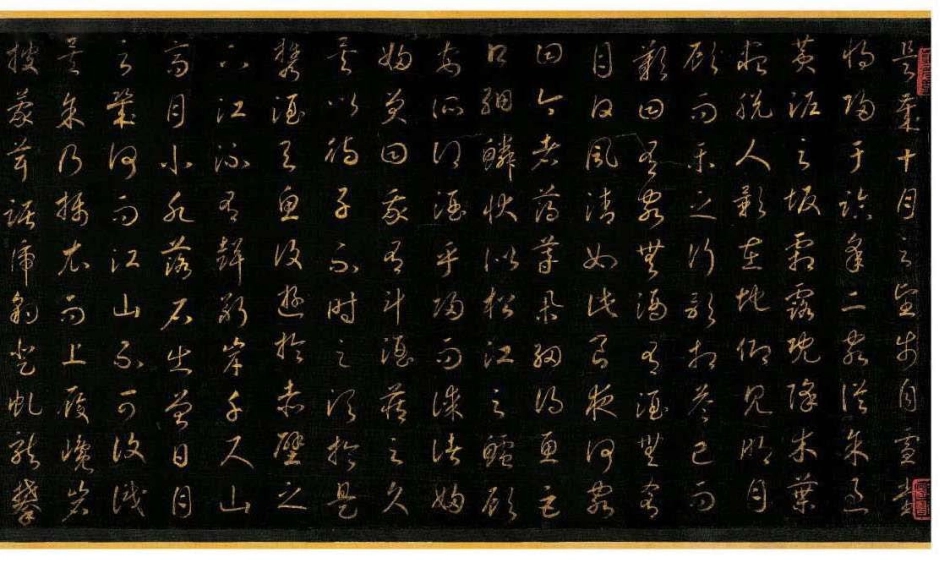 是歲十月之望步自雪堂
將歸于臨皋二客從余過
黃泥之坂霜露既降木葉
盡脫人影在地仰見明月
顧而樂之行歌相答已而
歎曰有客無酒有酒無肴
月白風清如此良夜何客
曰今者薄暮舉網得魚巨
口細鱗狀似松江之鱸顧
安所得酒乎歸而謀諸婦
婦曰我有斗酒藏之久
矣以待子不時之須於是
攜酒與魚復遊於赤壁之
下江流有聲斷岸千尺山
高月小水落石出曾日月
之幾何而江山不可復識
矣余乃攝衣而上履巉巖
披蒙茸踞虎豹登虬龍攀